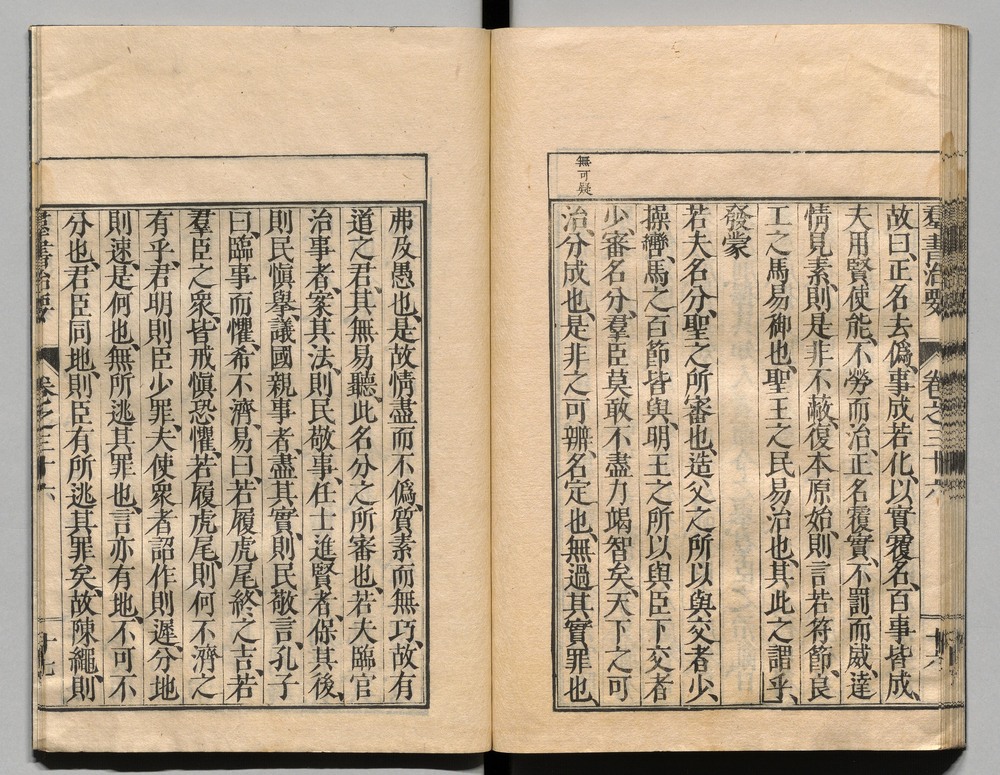 羣書治要 卷之三十六 十六
故曰、正名去僞、事成若化、以實覆名、百事皆成、
夫用賢使能、不勞而治、正名覆實、不罰而威、達
情見素、則是非不蔽、復本原始、則言若符節、良
工之馬易御也、聖王之民易治也、其此之謂乎、
發蒙
若夫名分、聖之所審也、造父之所以與交者少、
操轡、馬之百節皆與、明王之所以與臣下交者
少、審名分、羣臣莫敢不盡力竭智矣、天下之可
治、分成也、是非之可辨、名定也、無過其實、罪也、
無可疑
弗及愚也、是故情盡而不僞、質素而無巧、故有
道之君、其無易聽、此名分之所審也、若夫臨官
治事者、案其法、則民敬事、任士進賢者、保其後、
則民愼擧、議國親事者、盡其實、則民敬言、孔子
曰、臨事而懼、希不濟、易曰、若履虎尾、終之吉、若
羣臣之衆、皆戒愼恐懼、若履虎尾、則何不濟之
有乎、君明則臣少罪、夫使衆者詔作則遲、分地
則速、是何也、無所逃其罪也、言亦有地、不可不
分也、君臣同地、則臣有所逃其罪矣、故陳繩、則
羣書治要 卷之三十六 十七